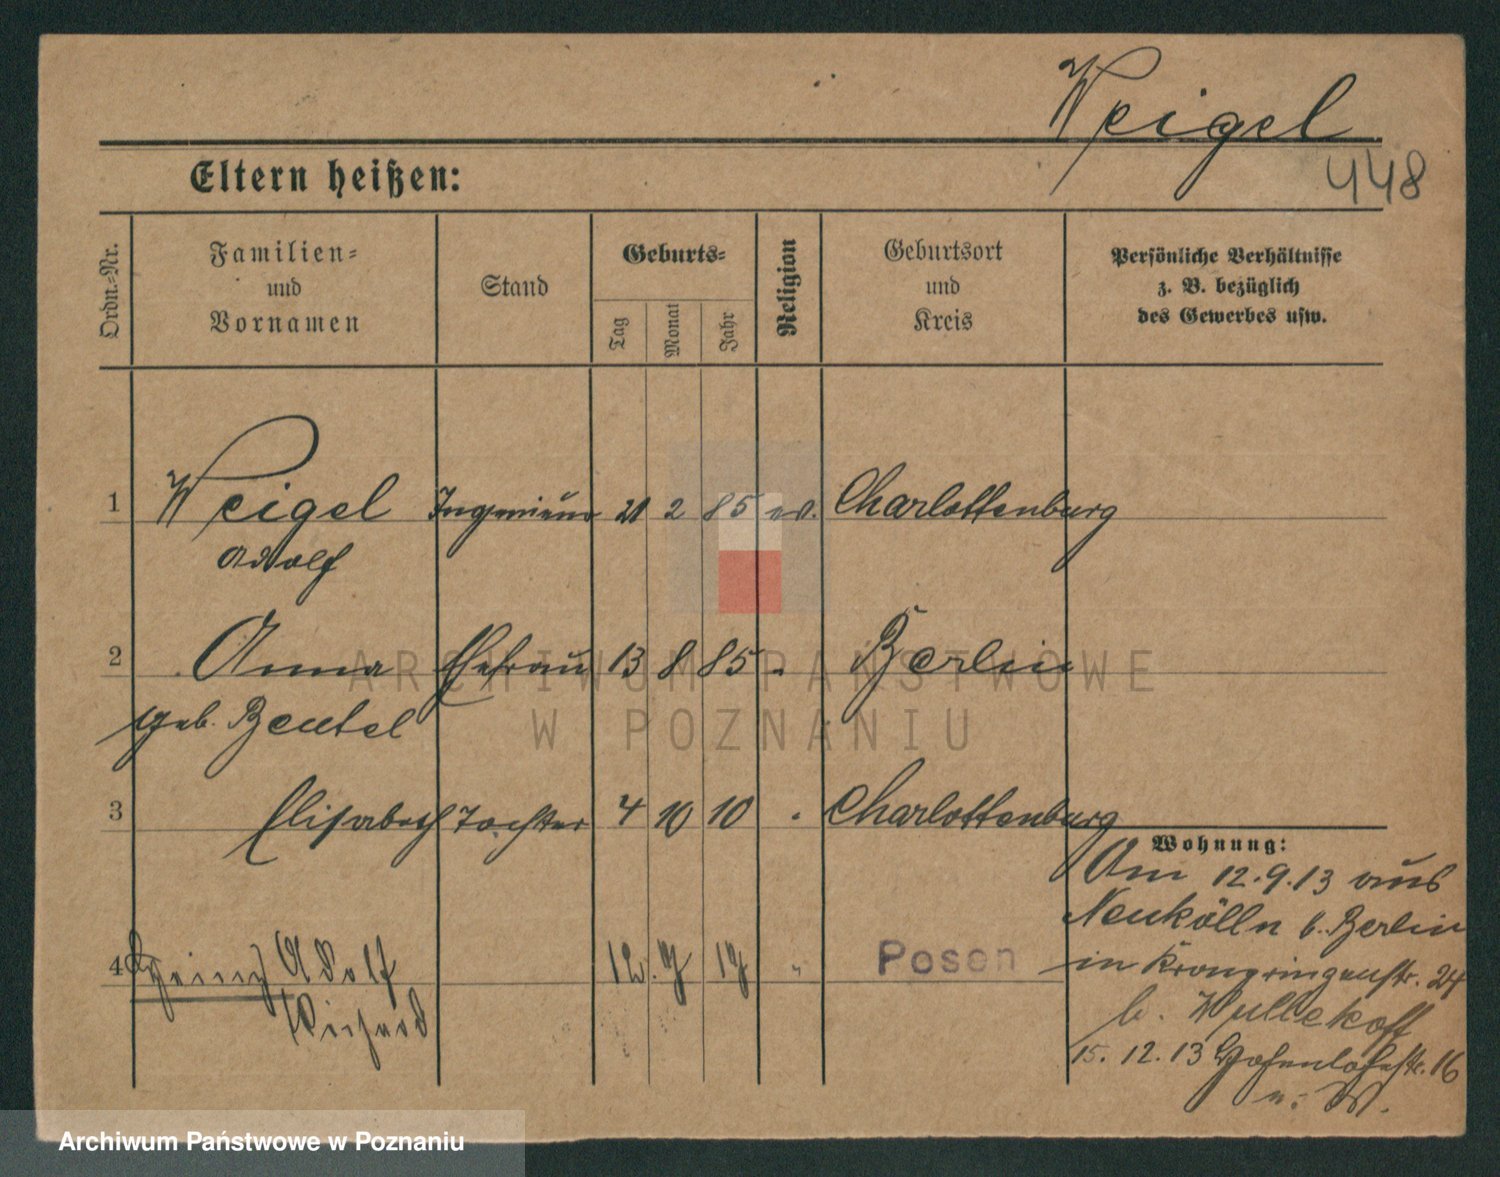 Weigel
448
Eltern heißen:
Ordn.-Nr.
Familien-
und
Vornamen
Stand
Geburts-
Tag
Monat
Jahr
Religion
Geburtsort
und
Kreis
Persönliche Verhältnisse
z. B. bezüglich
des Gewerbes usw.
1 Weigel Ingenieur 21 2 85 ev. Charlottenburg
Adolf
2 Anna Ehefrau 13 8 85 " Berlin
geb. Beutel
3 Elisabeth Tochter 4 10 10 " Charlottenburg
Wohnung:
Am 12.9.13 aus
Neukölln b. Berlin
in Kronprinzenstr. 24
b. Wullekopf
15. 12. 13 Hohenlohestr. 16
4 Heinz Adolf 12. " Posen
Richard
ARCHIWUM PAŃSTWOWE
W POZNANIU
Archiwum Państwowe w Poznaniu